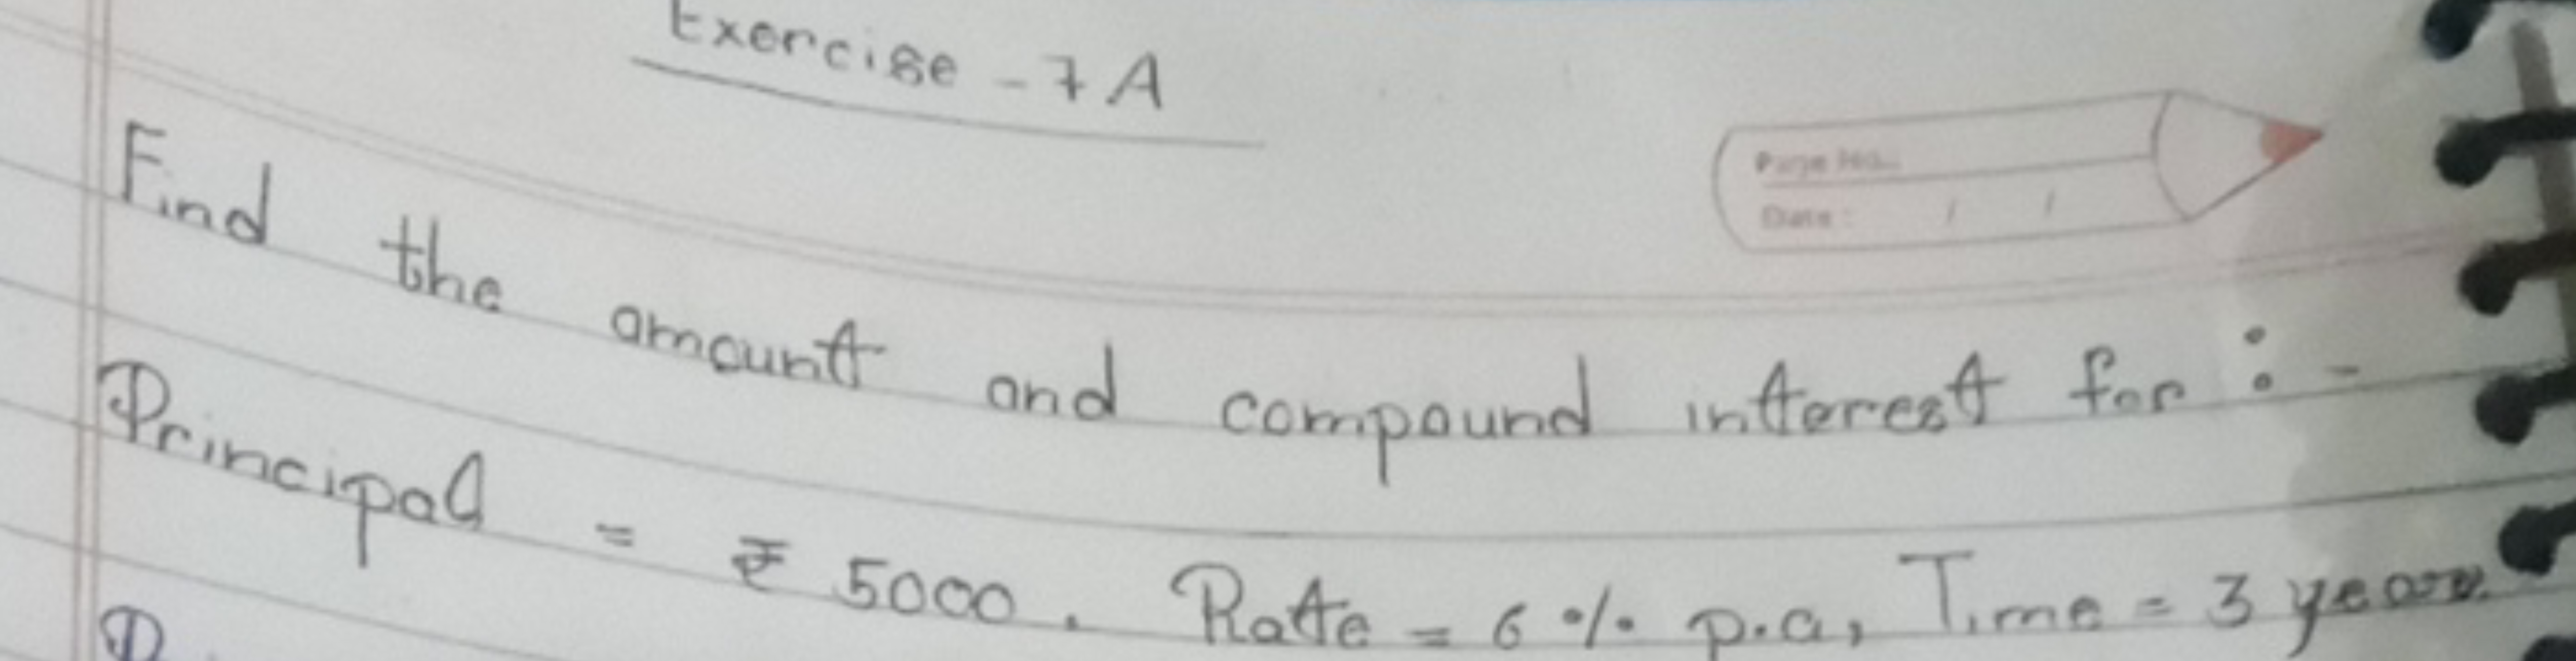 Exercise - 7A
Page No.:
Date: / /
Find the amount and compound interest for :-
Principal = ₹ 5000. Rate = 6 % p.a, Time = 3 years